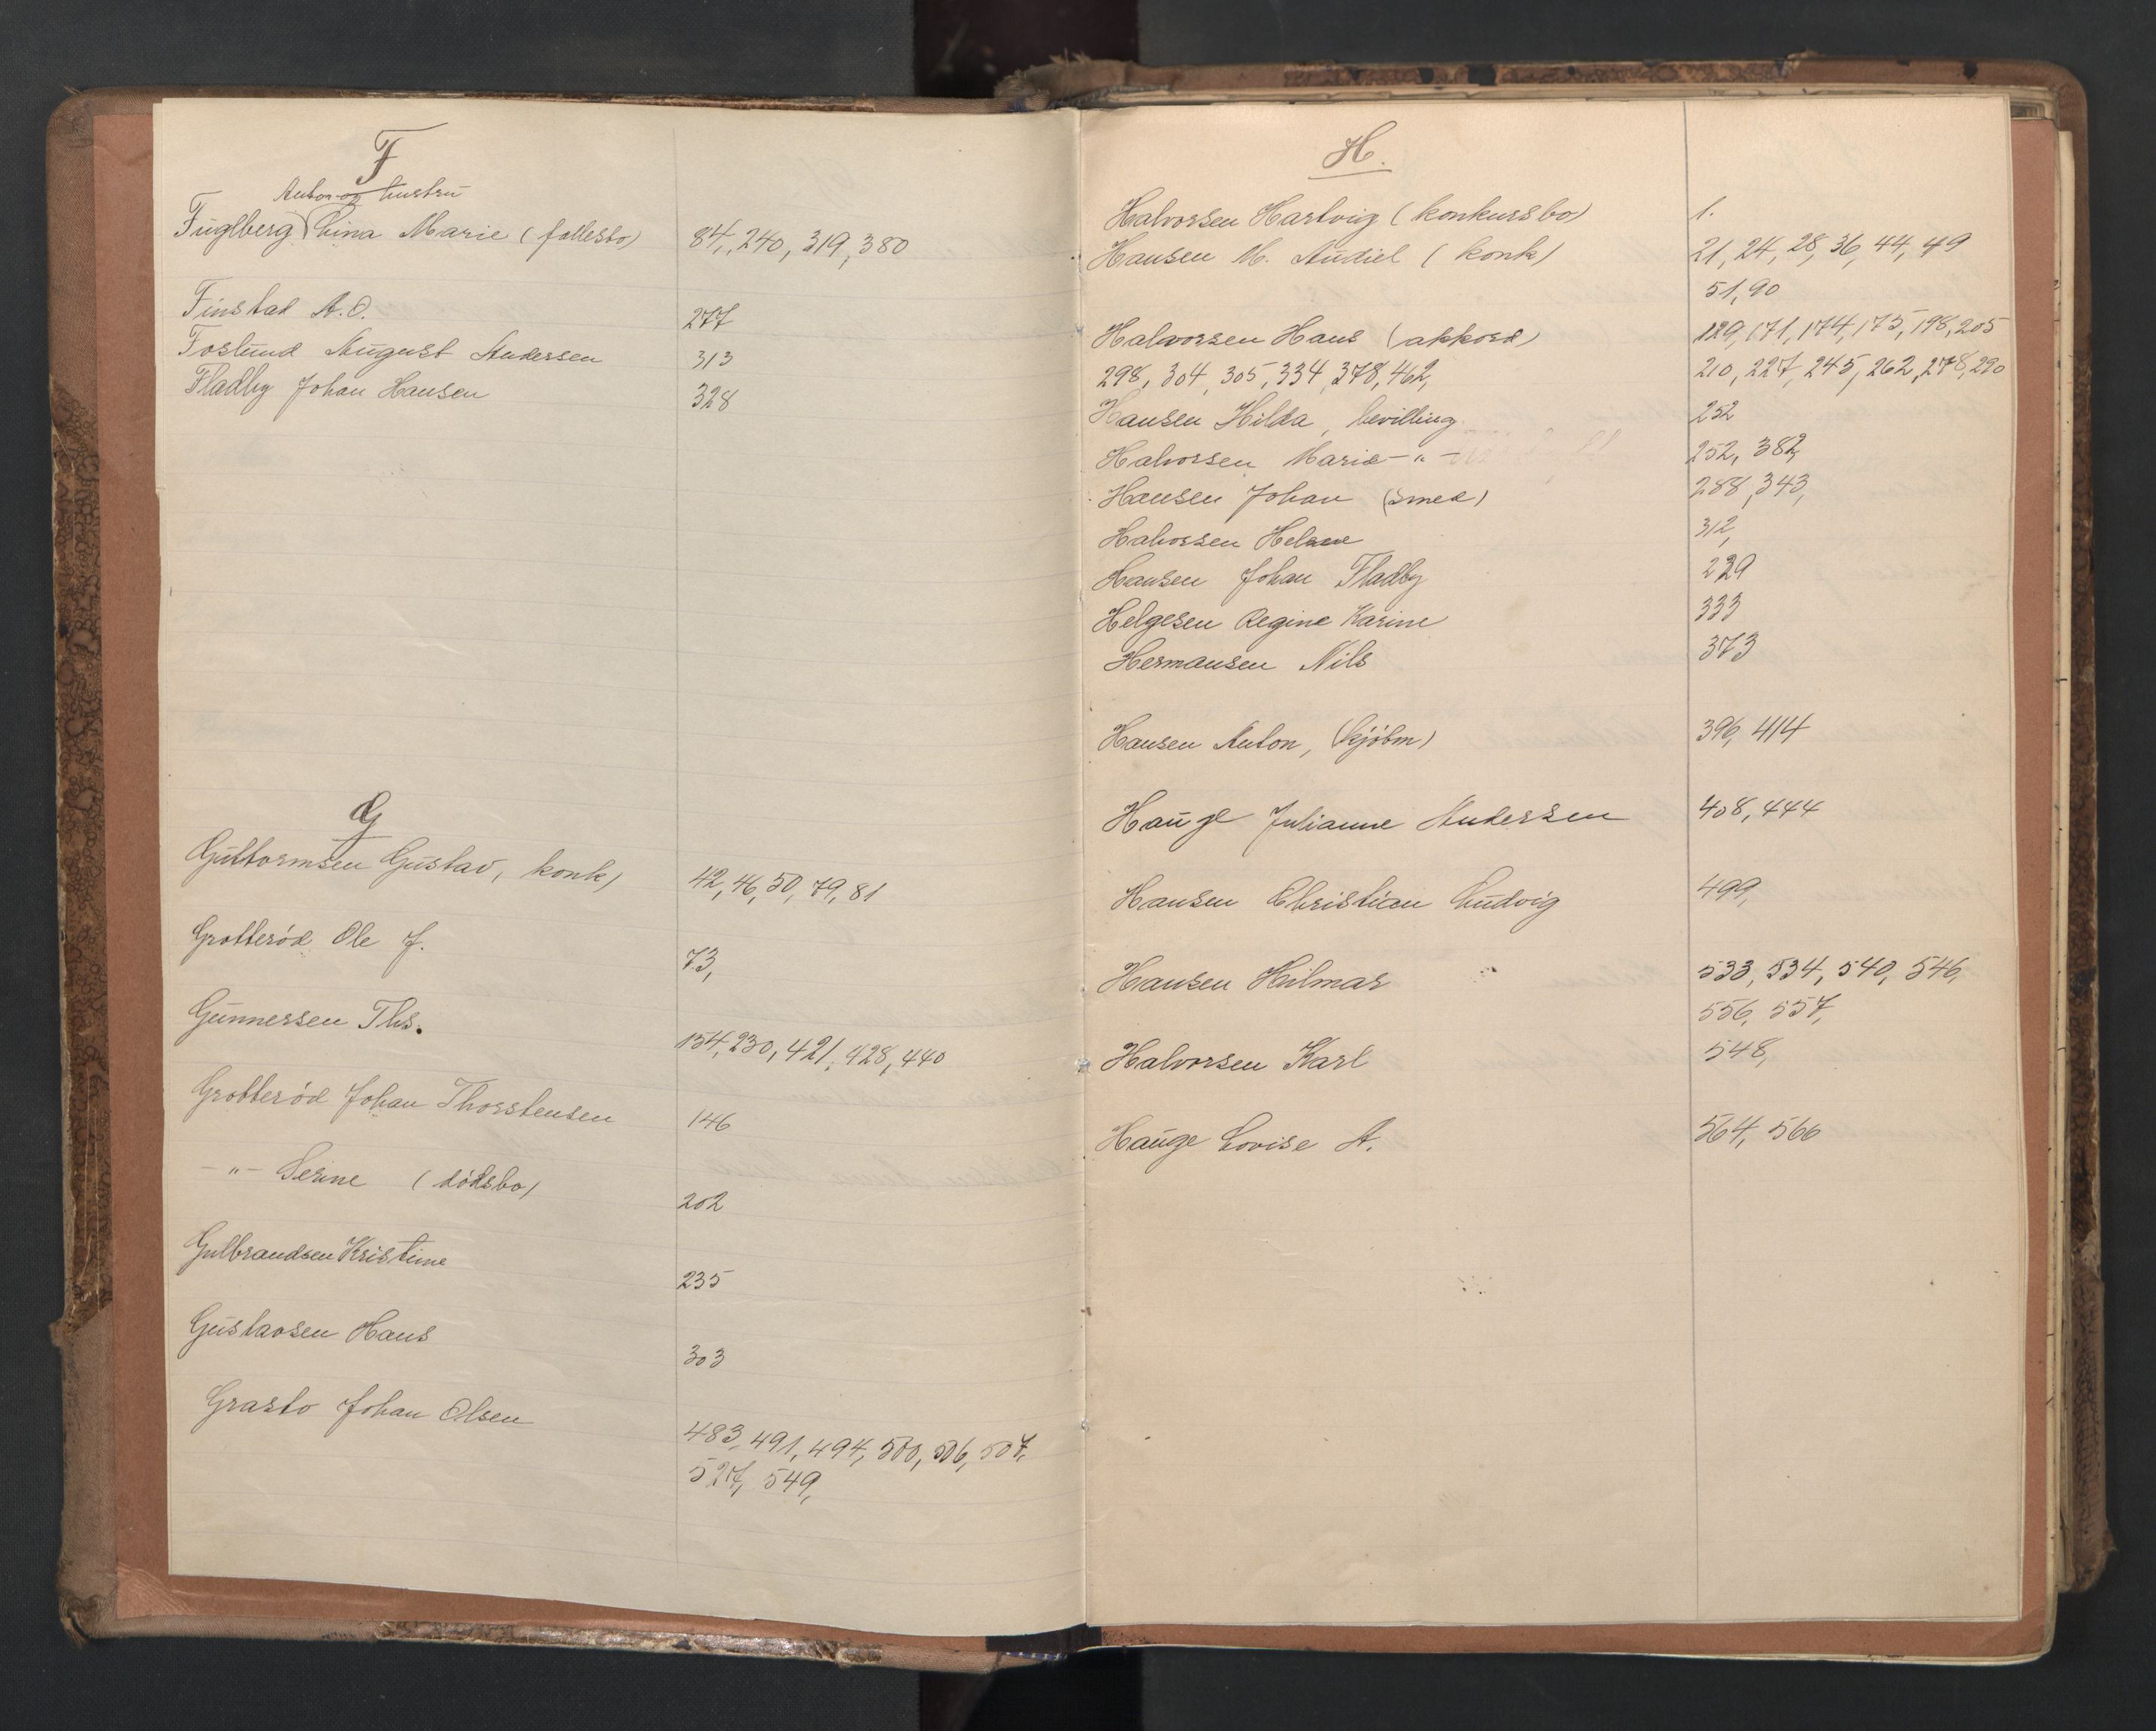 F
Anton og hustru
Fuglberg Lina Marie (fallesbo) 84, 240, 319, 380
Finstad A. O. 277
Foslund August Andersen 313
Fladby Johan Hansen 328
G
Guttormsen Gustav, konk) 42, 46, 50, 79, 81
Grotterød Ole J. 73,
Gunnersen Ths. 154, 230, 421, 428, 440
Grotterød Johan Thorstensen 146
-"- Serine (dødsbo) 202
Gulbrandsen Kristine 235
Gustavsen Hans 303
Grasto Johan Olsen 483, 491, 494, 500, 506, 507,
527, 549,
H.
Halvorsen Hartvig (konkursbo) 1.
Hansen M. Audiel (konk) 21, 24, 28, 36, 44, 49
51, 90
Halvorsen Hans (akkord) 129, 171, 174, 175, 198, 205
298, 304, 305, 334, 378, 462, 210, 227, 245, 262, 278, 290
Hansen Hilda, bevilling 252
Halvorsen Marie -"- 252, 382,
Hansen Johan (smed) 288, 343,
Halvorsen Helene 312,
Hansen Johan Fladby 229
Helgesen Regine Karine 333
Hermansen Nils 373
Hansen Anton, (kjøbm) 396, 414
Hauge Julianne Andersen 408, 444
Hansen Christian Ludvig 499,
Hansen Hilmar 533, 534, 540, 546,
556, 557,
Halvorsen Karl 548,
Hauge Lovise A. 564, 566